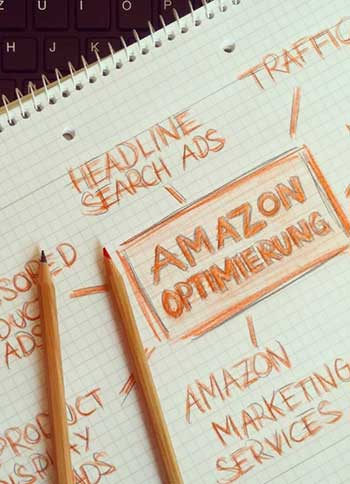 Z U I O P
H J K L
TRAFFIC
HEADLINE
SEARCH ADS
AMAZON
OPTIMIERUNG
ADS
AMAZON
MARKETING
SERVICES
PRODUCT
DISPLAY
ADS